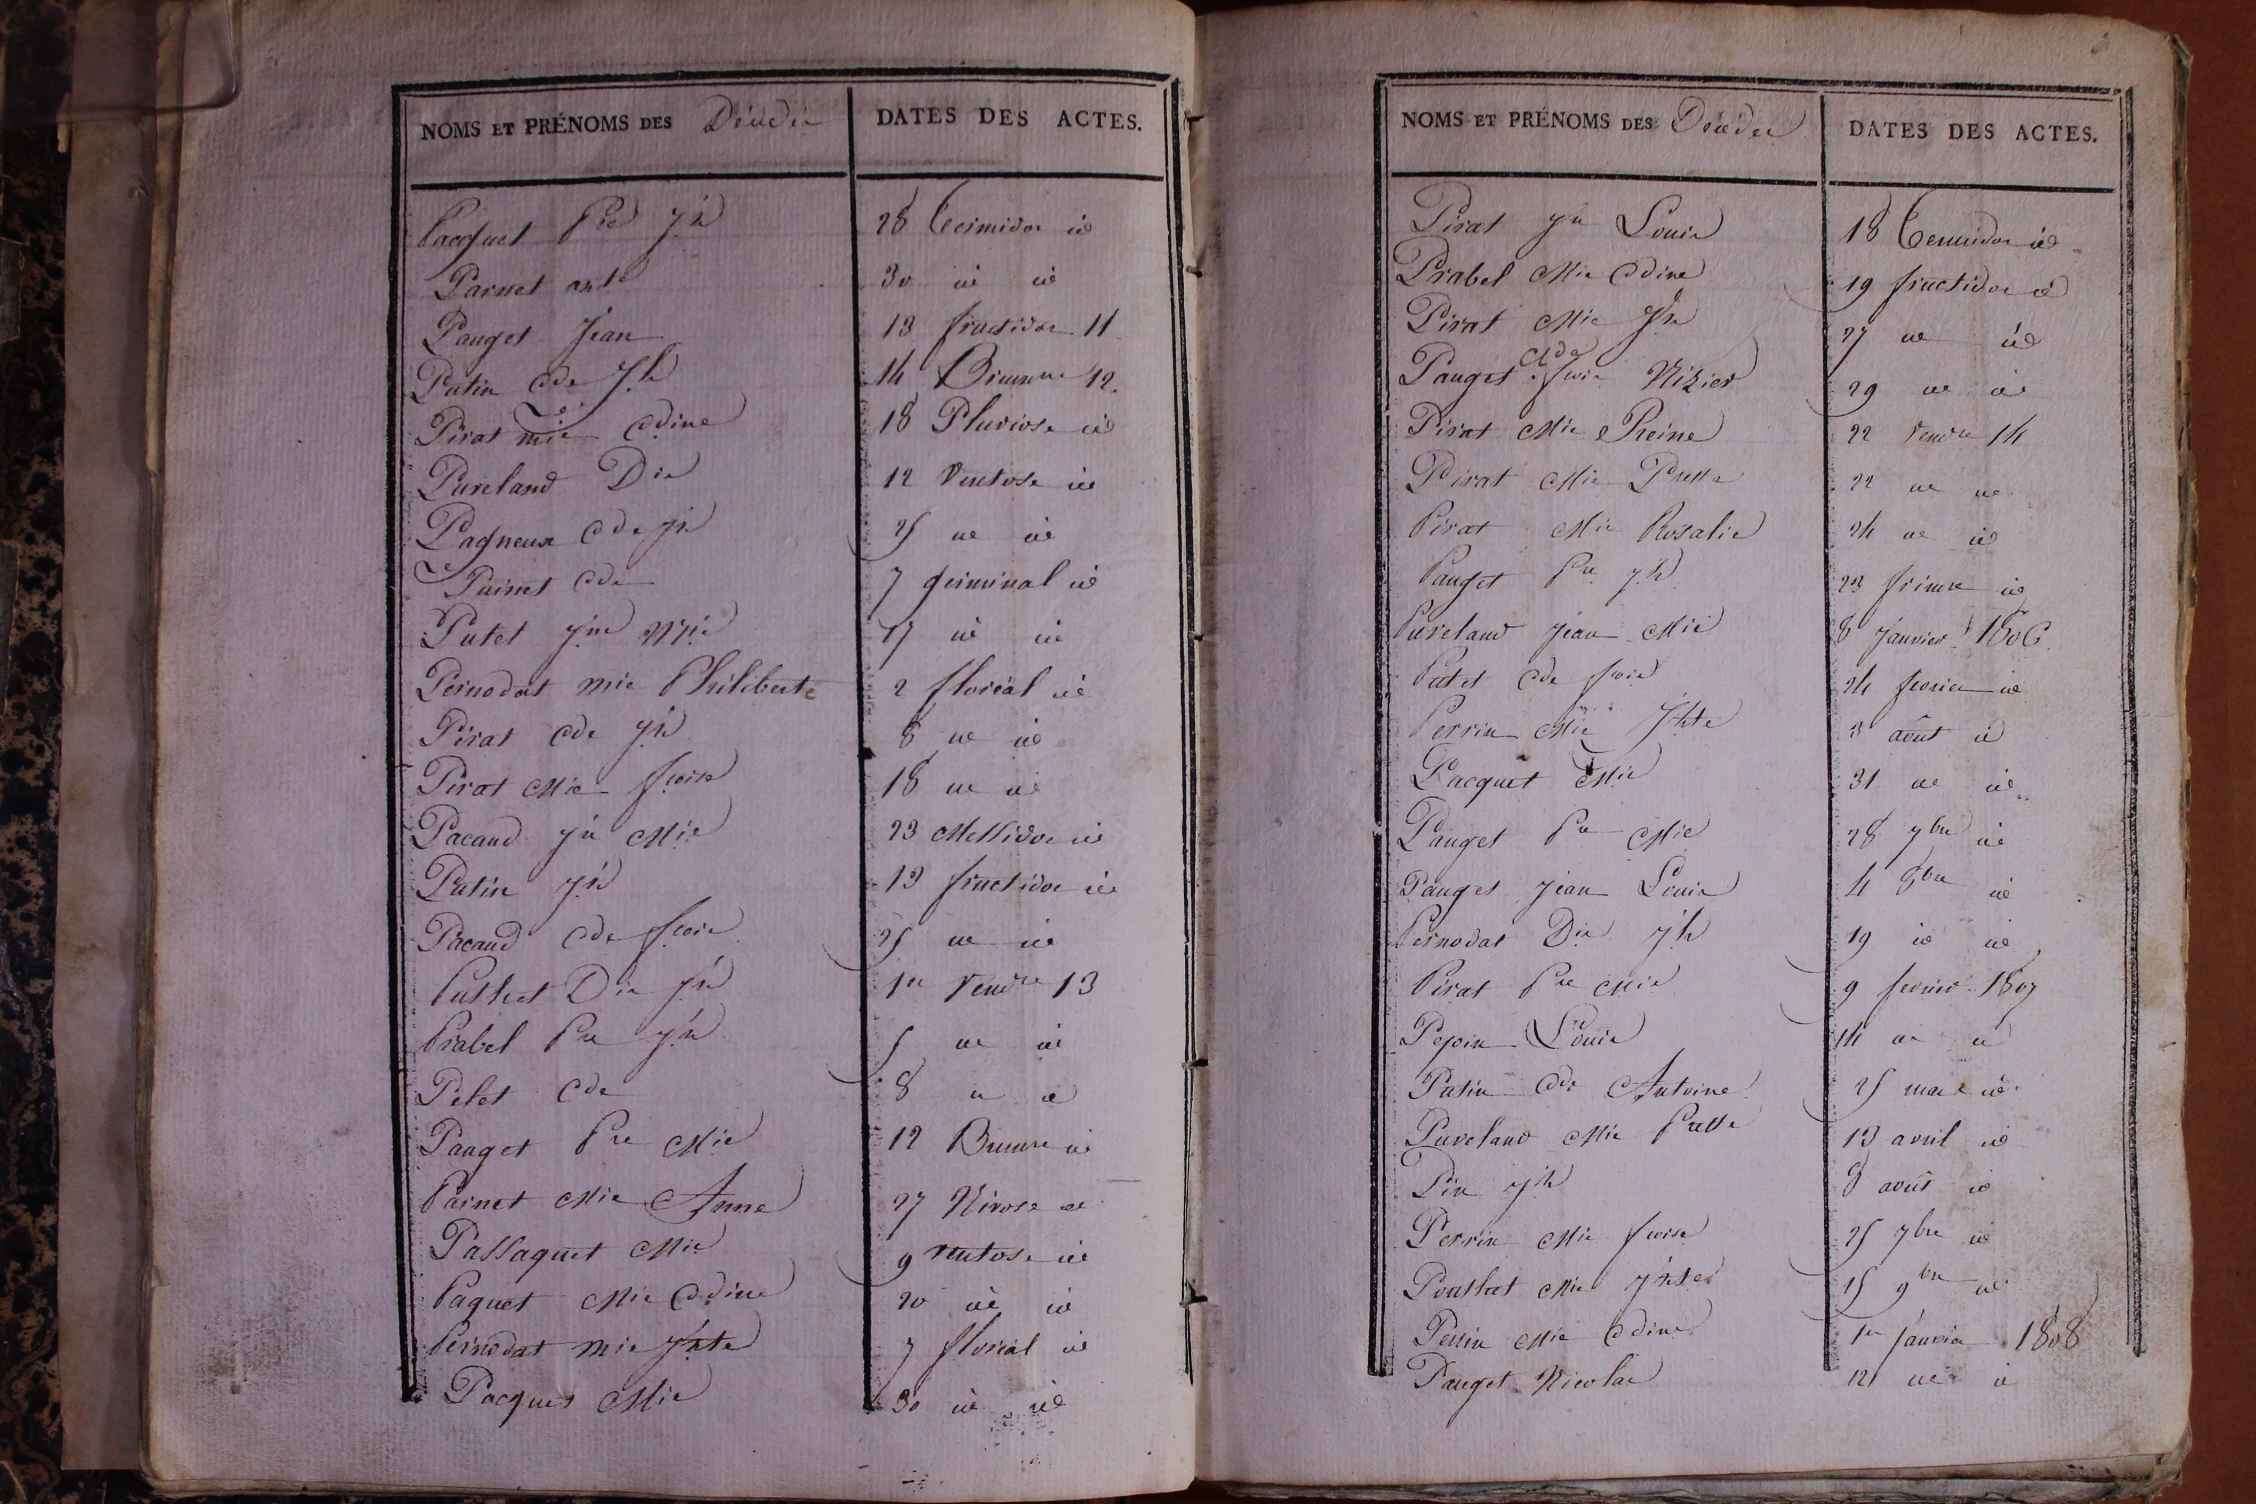 NOMS ET PRÉNOMS DES Décédés DATES DES ACTES.
Pacquet Pre Jh 28 termidor id
Parnet ante 30 id id
Pauget Jean 13 fructidor 11
Putin Cde Jh 14 Brumre 12.
Pirat mie Cdine 18 Pluviose id
Pureland Dis 12 Ventose id
Pagneux Cde Jh 25 id id
Painet Cde 7 germinal id
Putet Jn Mie 17 id id
Pernodat mie Philiberte 2 floréal id
Pirat Cde Jh 8 id id
Pirat Mie fcoise 18 id id
Pacaud Jn Mie 23 Messidor id
Putin Jh 13 fructidor id
Pacaud Cde fcois 25 id id
Puthet Dis Jh 1er Vendre 13
Prabel Pre Jh 5 id id
Pelet Cde 8 id id
Pauget Pre Mie 12 Brumre id
Parnet Mie Anne 27 Nivose id
Passaquet Mie 9 ventose id
Paquet Mie Cdine 20 id id
Pernodat mie Jhte 7 floréal id
Pacquet Mie 30 id id
NOMS ET PRÉNOMS DES Décédés DATES DES ACTES.
Pirat Jn Louis 18 termidor id
Prabel Mie Cdine 19 fructidor id
Pirat Mie Jh 27 id id
Cde
Pauget fcois Nizier 29 id id
Pirat Mie Reine 22 Vendre 14
Pirat Mie Prette 22 id id
Pirat Mie Rosalie 24 id id
Pauget Pre Jh 23 frimre id
Pureland Jean Mie 8 Janvier 1806
Putet Cde fcois 24 fevrier id
Perrin Mie Jhte 3 août id
Pacquet Mie 31 id id
Pauget Pre Mie 28 7bre id
Pauget Jean Louis 4 8bre id
Pernodat Dis Jh 19 id id
Pirat Pre Mie 9 fevrier 1807
Pepin Louis 14 id id
Patin Cde Antoine 25 mars id
Pureland Mie Prette 13 avril id
Pin Jh 8 août id
Perrin Mie fcoise 25 7bre id
Pouthat Mie Jhte 15 9bre id
Perrin Mie Cdine 1er Janvier 1808
Pauget Nicolas 12 id id